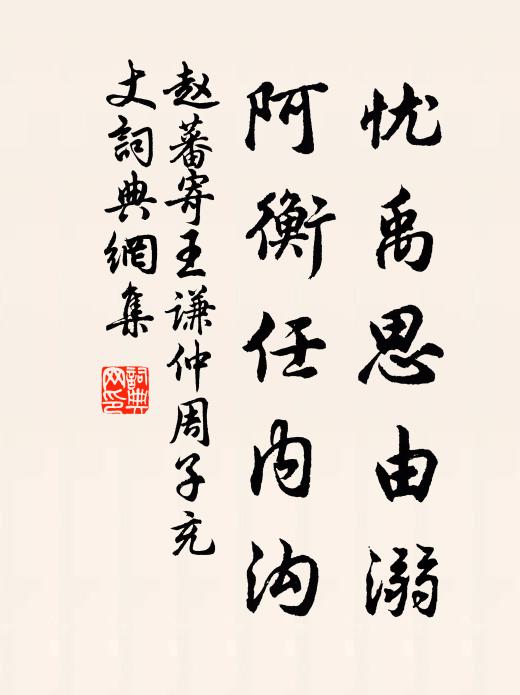 忧禹思由溺
阿衡任内沟
赵蕃寄王谦仲周子充
丈詞典網集
詞典網印